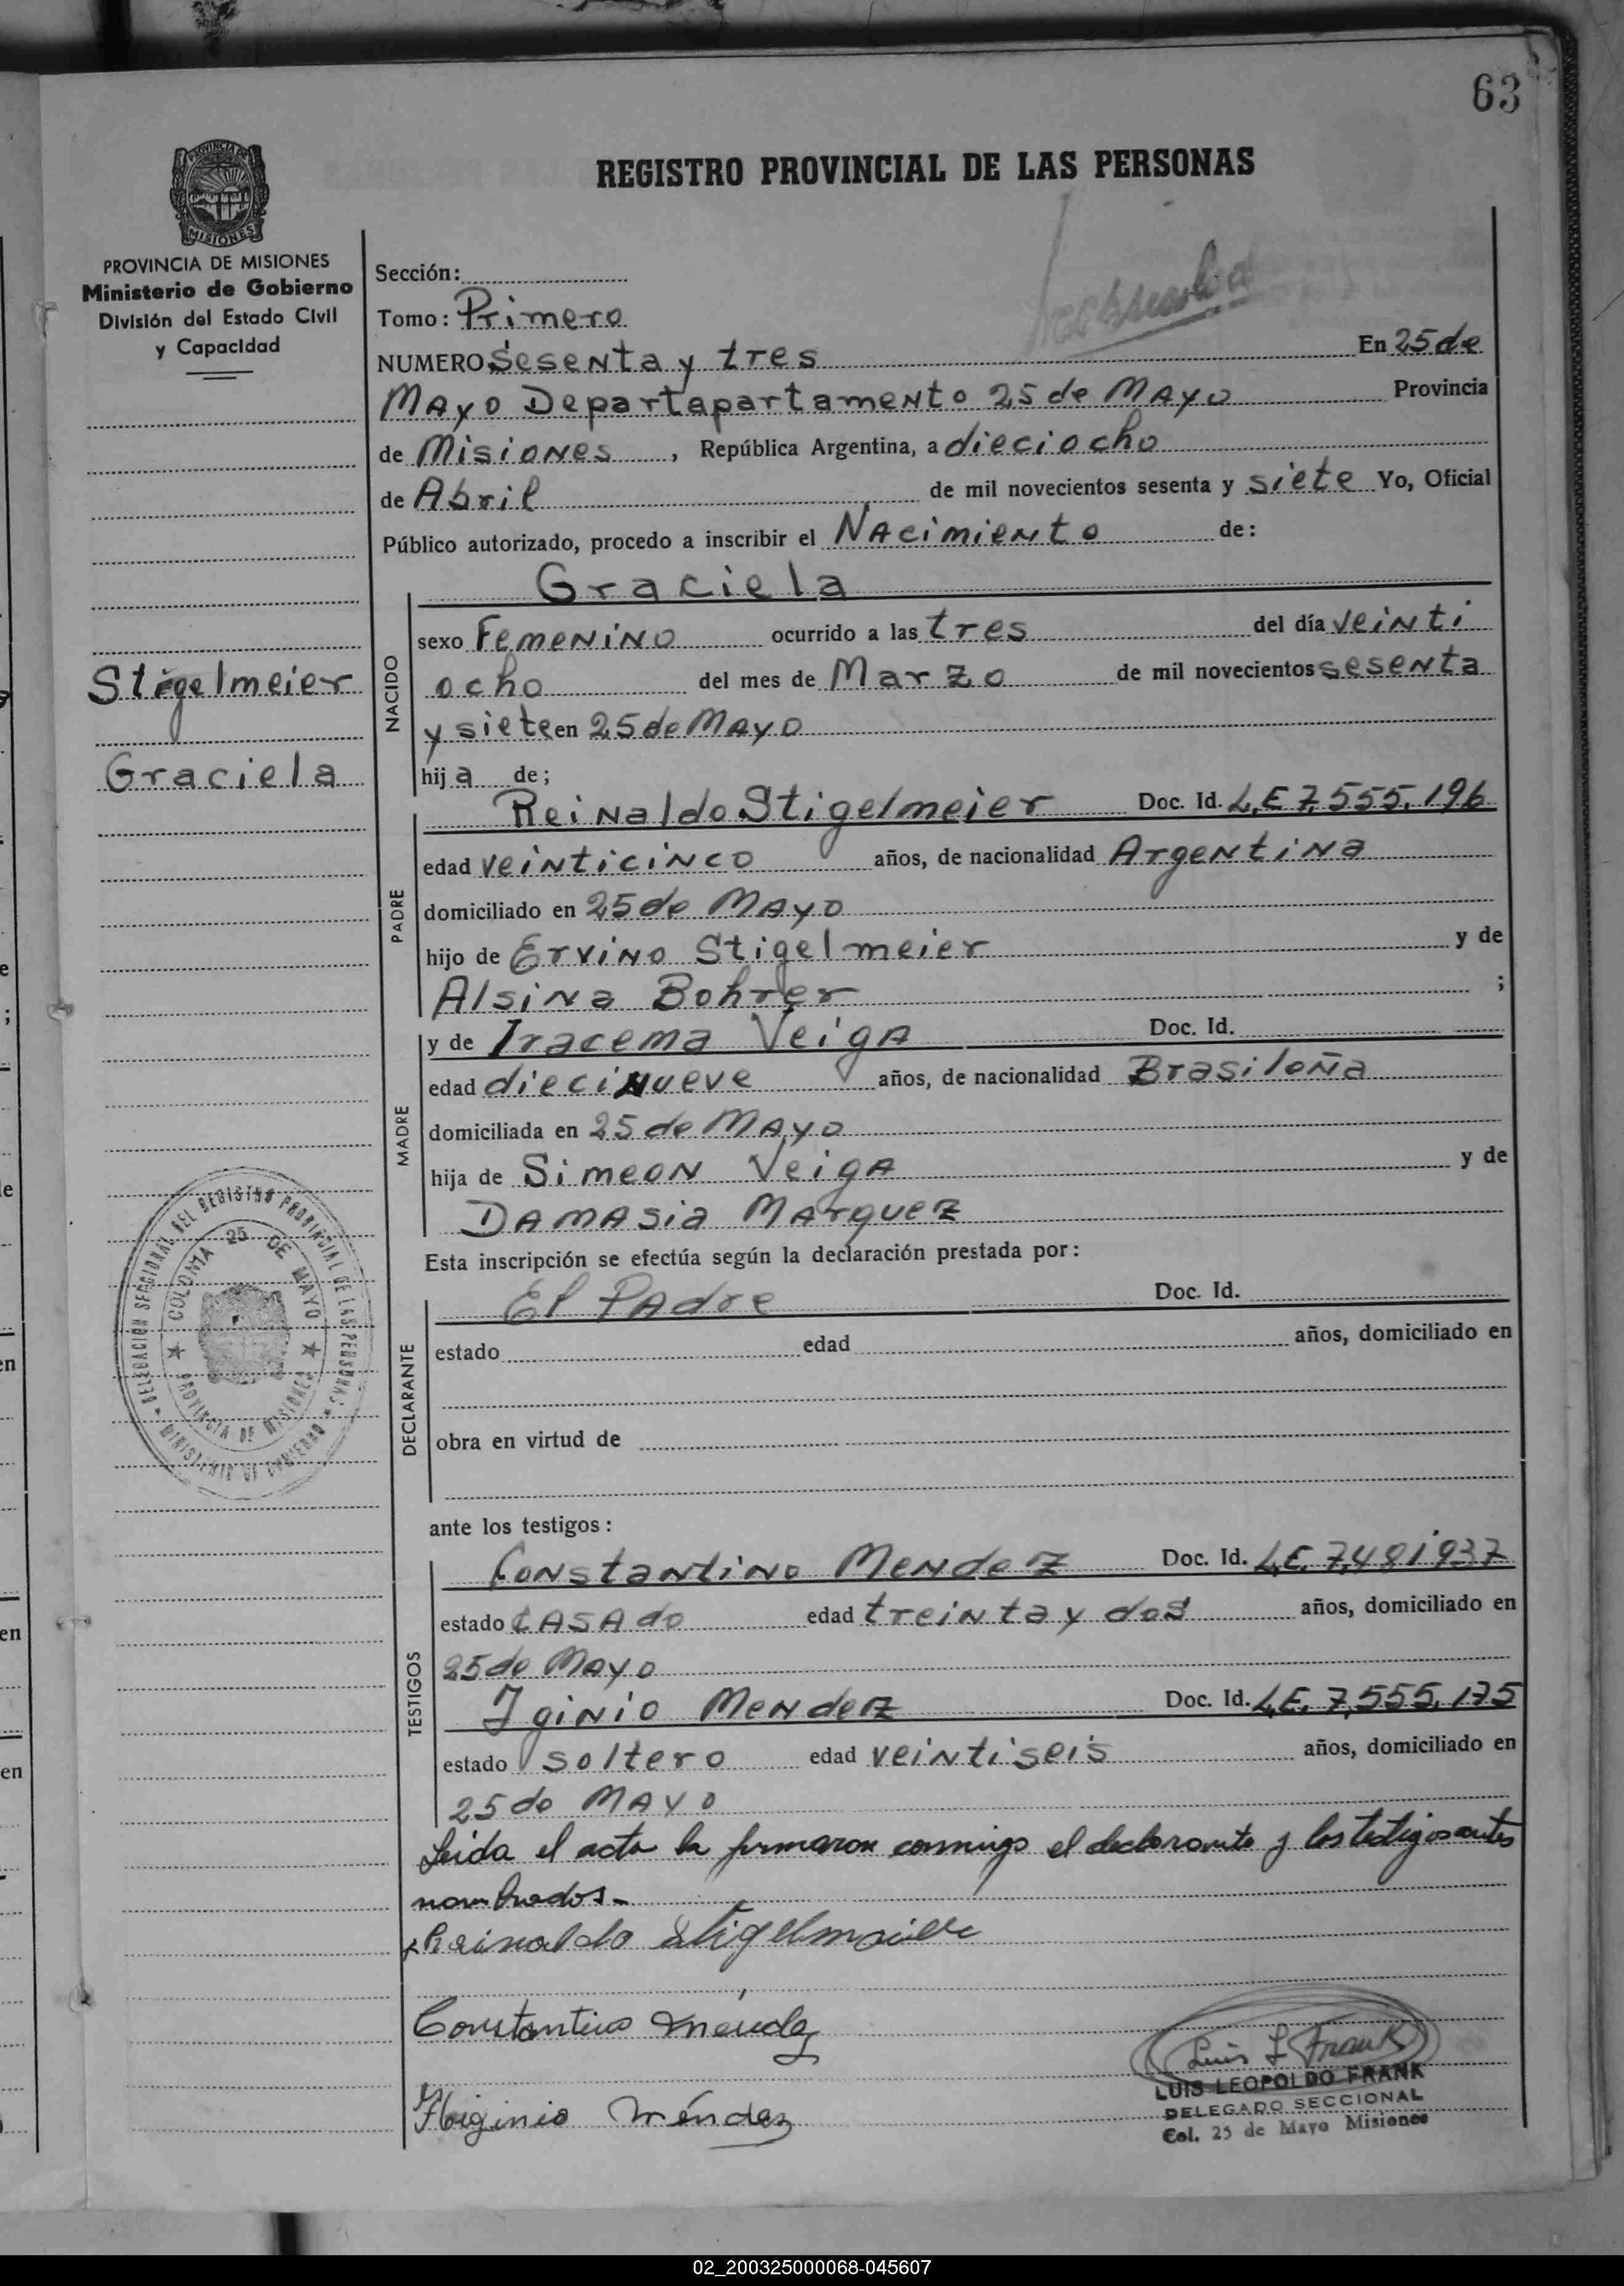 63
REGISTRO PROVINCIAL DE LAS PERSONAS
PROVINCIA DE
MISIONES
PROVINCIA DE MISIONES
Ministerio de Gobierno
División del Estado Civil
y Capacidad
Stigelmeier
Graciela
DELEGACION SECCIONAL DEL REGISTRO PROVINCIAL DE LAS PERSONAS
MINISTERIO DE GOBIERNO
COLONIA 25 DE MAYO
PROVINCIA DE MISIONES
Sección:
Tomo: Primero
NUMERO Sesenta y tres En 25 de
Mayo Departapartamento 25 de Mayo Provincia
de Misiones, República Argentina, a dieciocho
de Abril de mil novecientos sesenta y siete Yo, Oficial
Público autorizado, procedo a inscribir el Nacimiento de:
Graciela
NACIDO
sexo Femenino ocurrido a las tres del día veinti
ocho del mes de Marzo de mil novecientos sesenta
y siete en 25 de Mayo
hija de;
PADRE
Reinaldo Stigelmeier Doc. Id. L.E 7.555.196
edad veinticinco años, de nacionalidad Argentina
domiciliado en 25 de Mayo
hijo de Ervino Stigelmeier y de
Alsina Bohrer ;
MADRE
y de Iracema Veiga Doc. Id.
edad diecinueve años, de nacionalidad Brasileña
domiciliada en 25 de Mayo
hija de Simeon Veiga y de
Damasia Marquez
Esta inscripción se efectúa según la declaración prestada por:
DECLARANTE
El Padre Doc. Id.
estado edad años, domiciliado en
obra en virtud de
ante los testigos:
TESTIGOS
Constantino Mendez Doc. Id. L.E. 7.481937
estado Casado edad treinta y dos años, domiciliado en
25 de Mayo
Iginio Mendez Doc. Id. L.E. 7.555.175
estado soltero edad veintiseis años, domiciliado en
25 de Mayo
Leida el acta la firmaron conmigo el declarante y los testigos antes
nombrados.-
Reinaldo Stigelmeier
Constantino Méndez
Higinio Méndez
Luis L Frank
LUIS LEOPOLDO FRANK
DELEGADO SECCIONAL
Col. 25 de Mayo Misiones
02_200325000068-045607